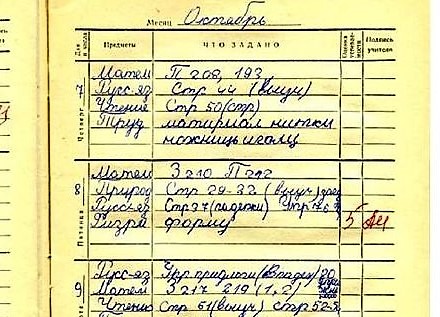 Месяц Октябрь
Дни и часы Предметы ЧТО ЗАДАНО Оценка успеваемости Подпись учителя
7 Четверг
Матем П 208, 193
Русс-яз Стр 44 (выуч)
Чтение Стр 50 (стр)
Труд материал нитки
ножницы иголц
8 Пятница
Матем З 210 П 212
Природ Стр 29-32 (выуч)
Русс-яз Стр 37 (падежи) Упр 76
Физра форму 5
9
Русс-яз Упр предлоги (Владеж) 20
Матем З 217 219 (1,2)
Чтение Стр 51 (выуч) стр 52-5